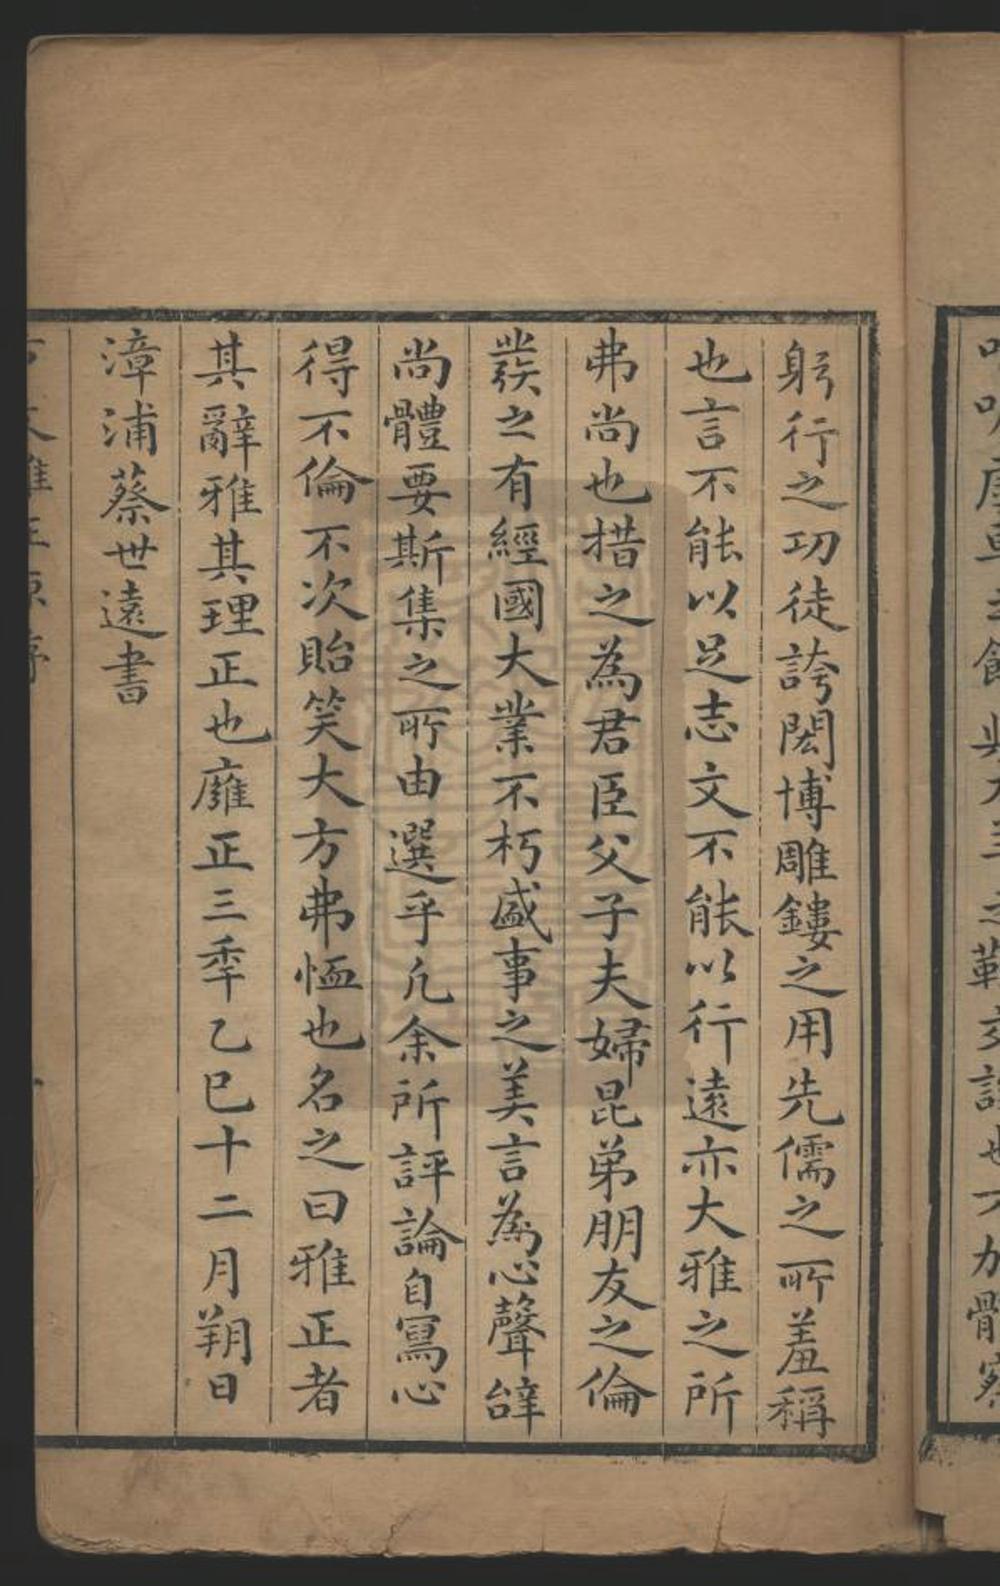 躬行之功徒誇閎博雕鏤之用先儒之所羞稱
也言不能以足志文不能以行遠亦大雅之所
弗尚也措之為君臣父子夫婦昆弟朋友之倫
發之有經國大業不朽盛事之美言為心聲辭
尚體要斯集之所由選乎凡余所評論自寫心
得不倫不次貽笑大方弗恤也名之曰雅正者
其辭雅其理正也雍正三秊乙巳十二月朔日
漳浦蔡世遠書